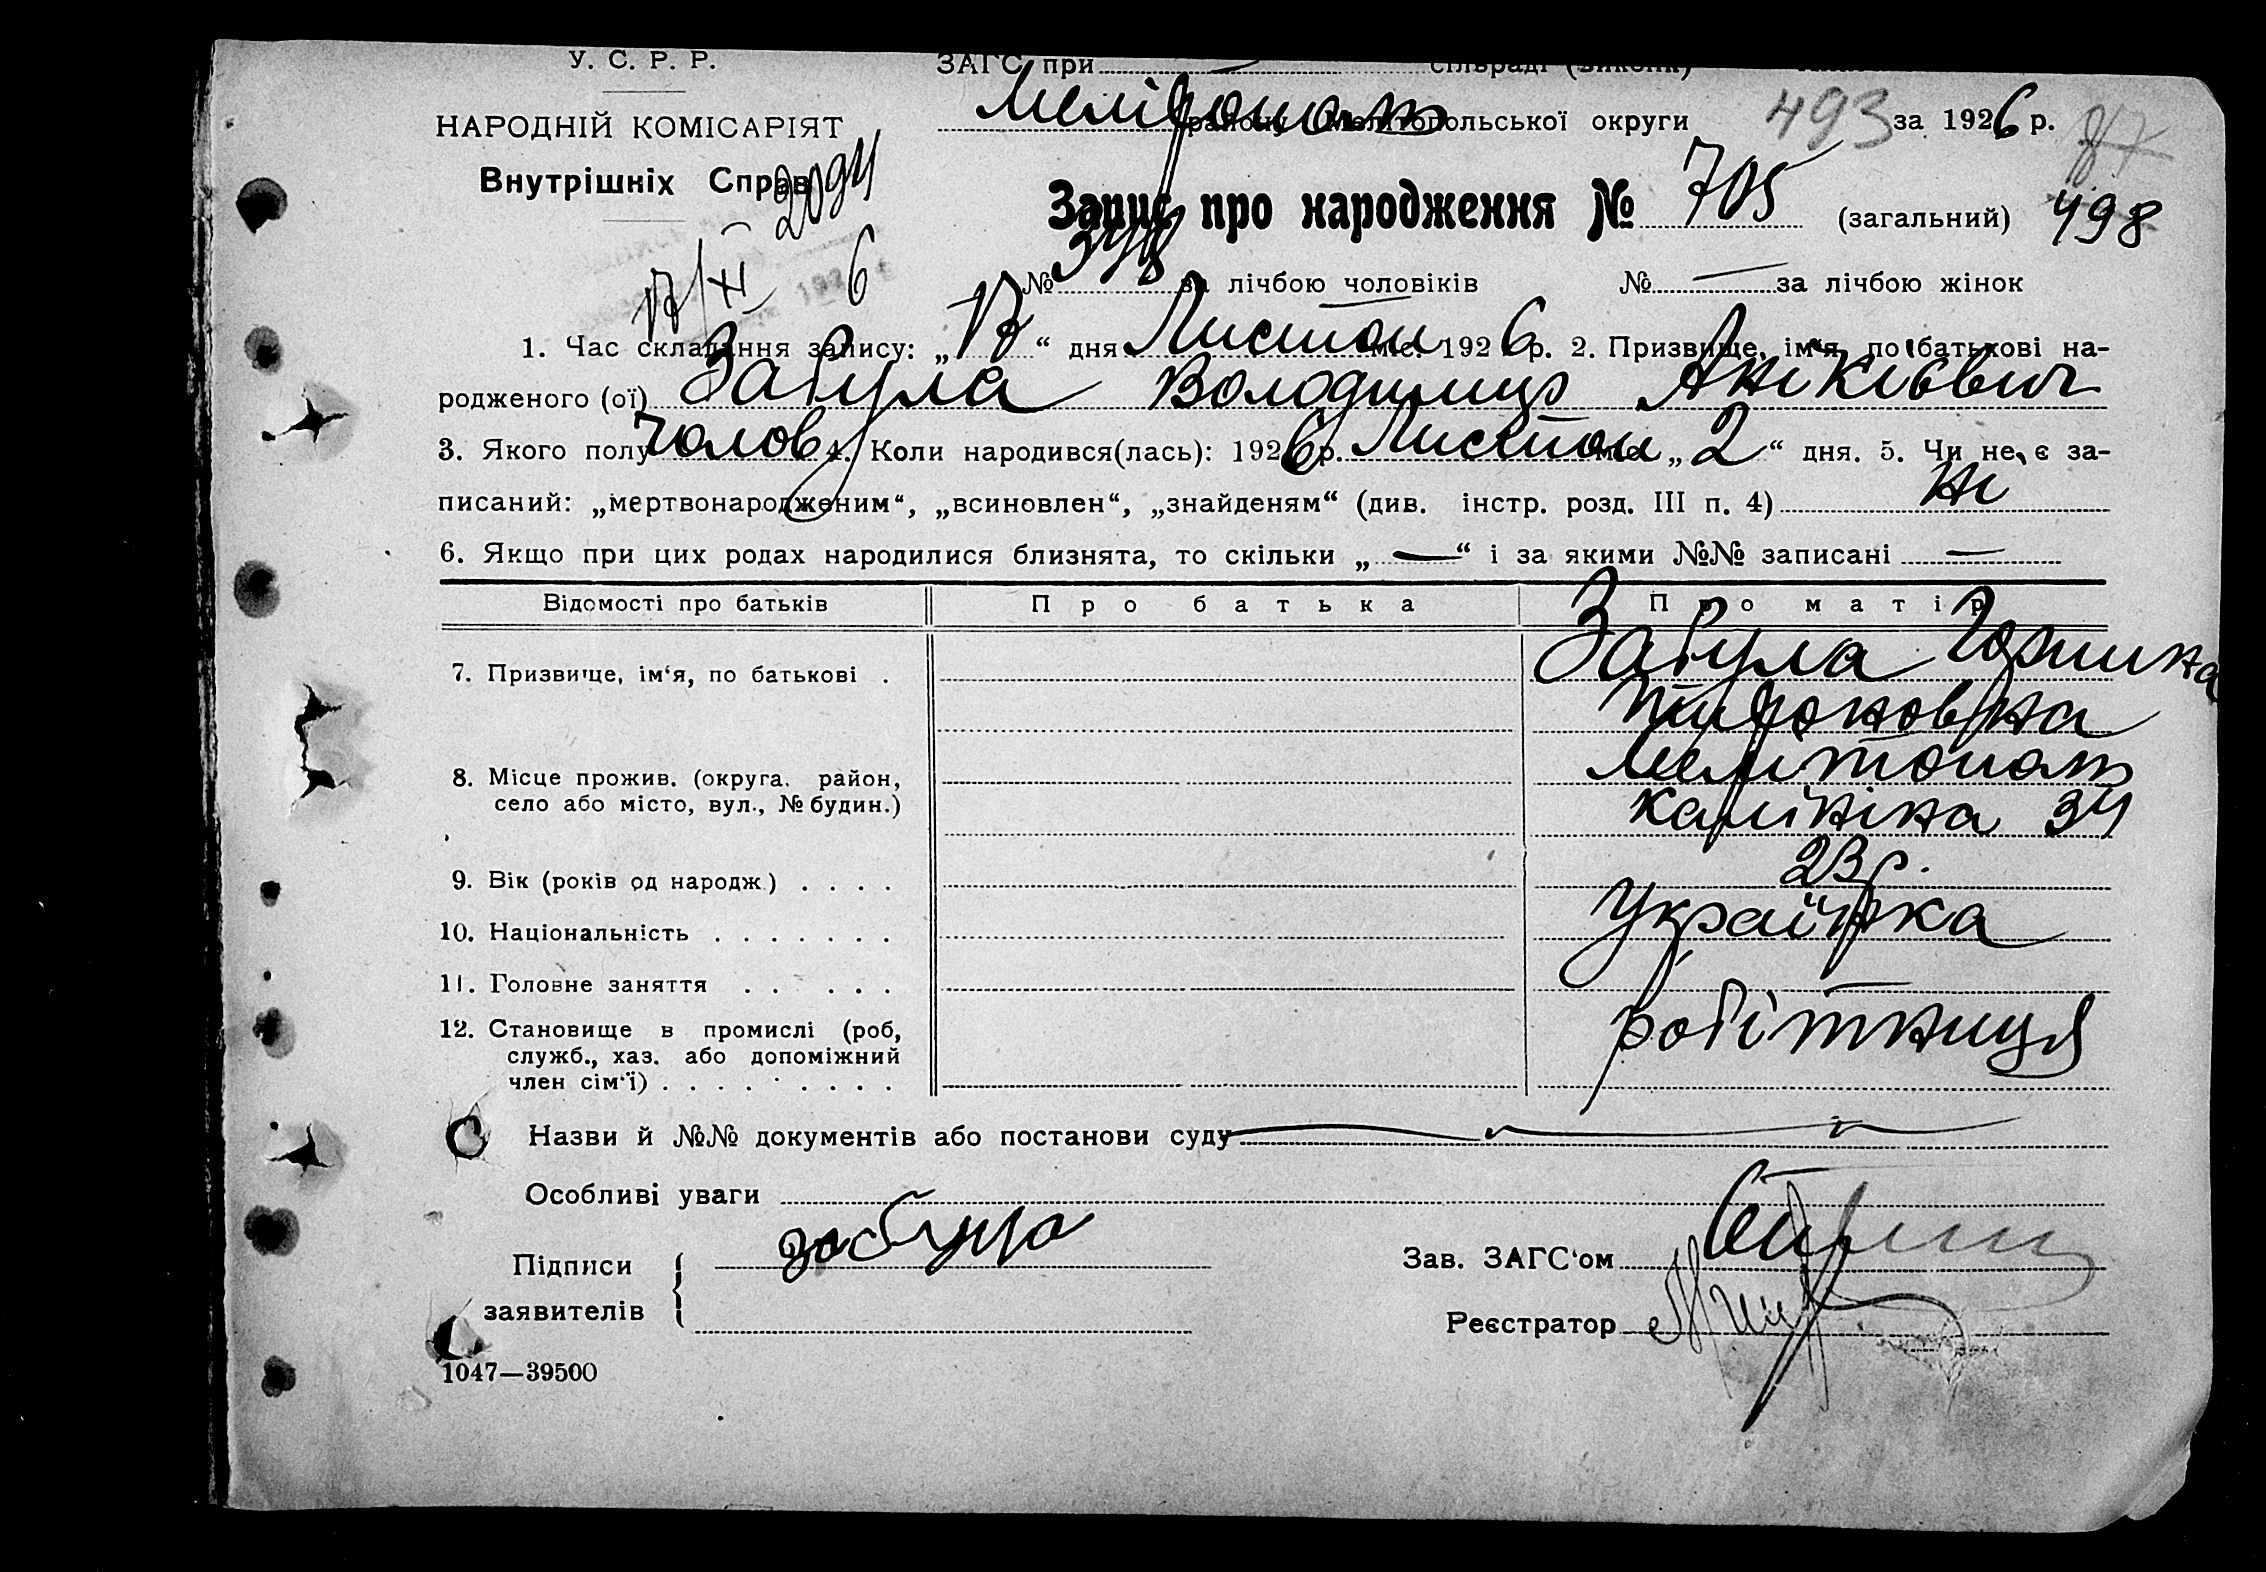 У. С. Р. Р.
ЗАГС при сільраді
НАРОДНІЙ КОМІСАРІЯТ
Внутрішніх Справ
району Мелітопольської округи 493 за 1926 р.
Запис про народження № 705 (загальний) 498
№ за лічбою чоловіків № — за лічбою жінок
1. Час складання запису: „17“ дня Листоп міс. 1926 р. 2. Призвище, ім'я, по батькові на-
родженого (ої) Забула Володимир Анікієвич
3. Якого полу чолов 4. Коли народився(лась): 1926 р. Листоп міс. „2“ дня. 5. Чи не є за-
писаний: „мертвонародженим“, „всиновлен“, „знайденям“ (див. інстр. розд. III п. 4) ні
6. Якщо при цих родах народилися близнята, то скільки „—“ і за якими №№ записані —
Відомості про батьків Про батька Про матір
7. Призвище, ім'я, по батькові . Забула
8. Місце прожив. (округа, район, Мелітополь
село або місто, вул., № будин.) Калініна 34
9. Вік (років од народж.) . . . . 23 р.
10. Національність . . . . . . . Українка
11. Головне заняття . . . . . .
12. Становище в промислі (роб, робітниця
служб., хаз. або допоміжний
член сім'ї) . . . . . . . . .
Назви й №№ документів або постанови суду
Особливі уваги
Підписи забула Зав. ЗАГС'ом
заявителів Реєстратор
1047—39500